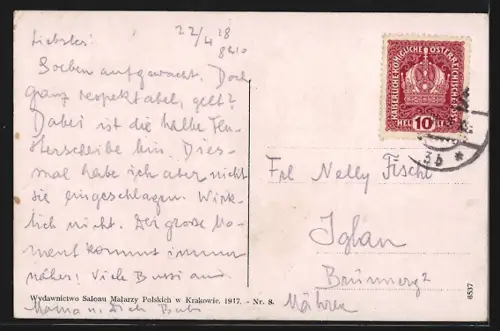 22/4 18
8h10
Liebster!
Soeben aufgewacht. Doch
ganz respektabel, gelt?
Dabei ist die halbe Fen-
sterscheibe hin. Dies-
mal habe ich aber nicht
sie eingeschlagen. Wirk-
lich nicht. Der große Mo-
ment kommt immer
näher! Viele Bussi an
Mama u. Dich Bubi
KAISERLICHE KÖNIGLICHE ÖSTERREICHISCHE POST
HELLER
10
3b *
Frl Nelly Fischl
Iglau
Brünnerg 2
Mähren
Wydawnictwo Salonu Malarzy Polskich w Krakowie. 1917. - Nr. 8.
6537